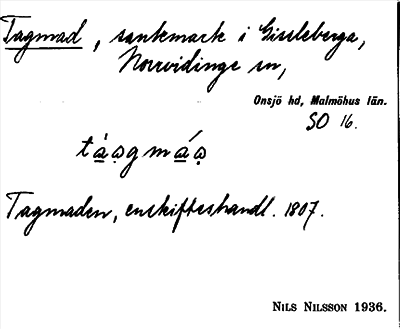 Tagmad, sankmark i Gissleberga,
Norrvidinge sn,
Onsjö hd, Malmöhus län.
SO 16.
Tagmaden, enskifteshandl. 1807.
NILS NILSSON 1936.